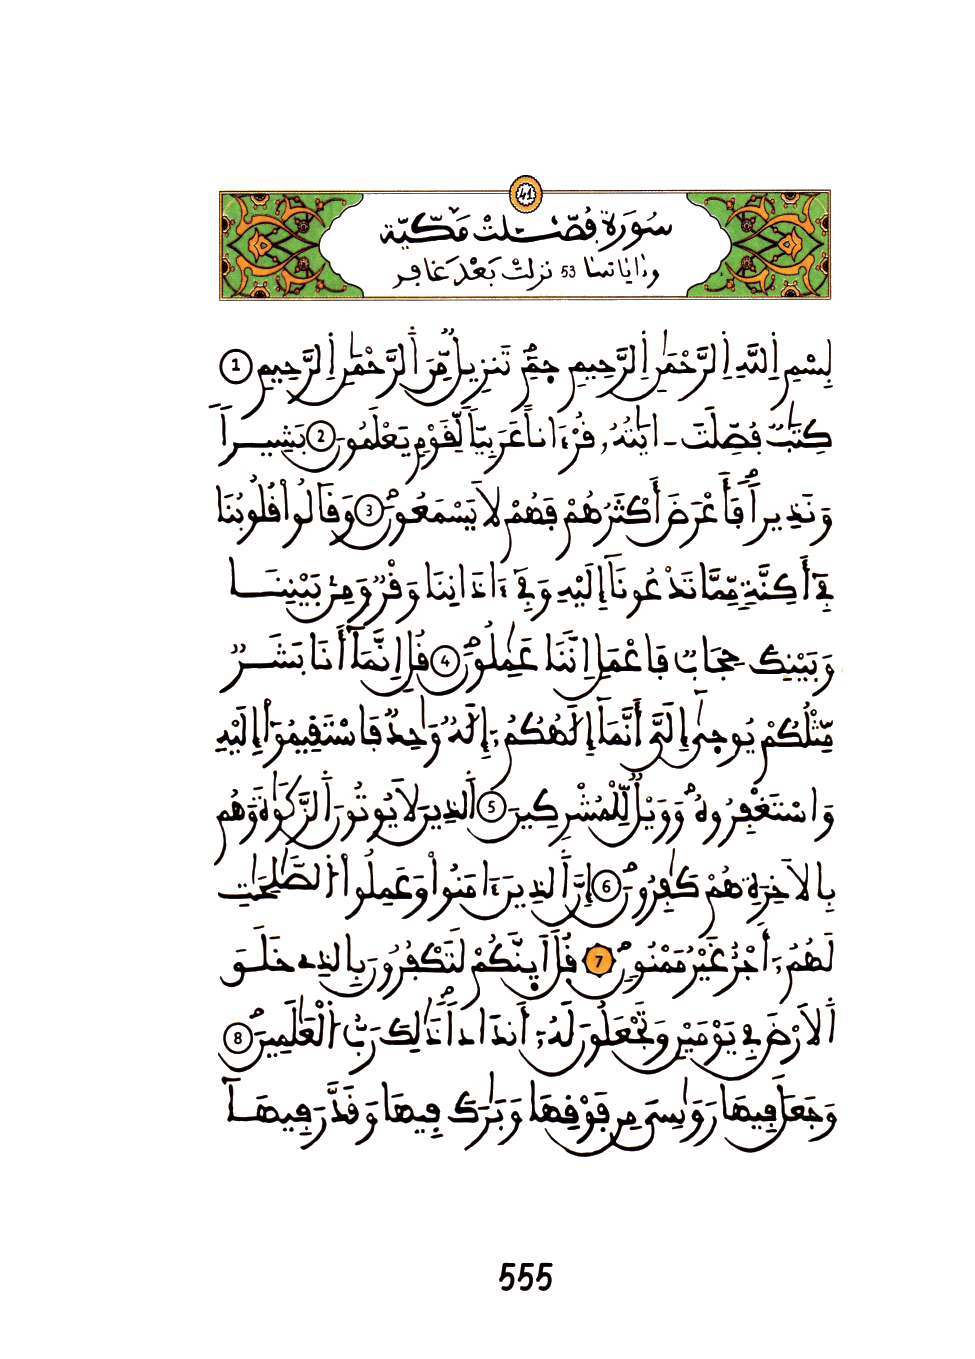 41
سُورَةُ فُصِّلَتْ مَكِّيَّةٌ
وءاياتها 53 نزلت بَعْدَ غافر
بِسْمِ اِ۬للَّهِ اِ۬لرَّحْمَٰنِ اِ۬لرَّحِيمِ حَمِٓ تَنزِيلٞ مِّنَ اَ۬لرَّحْمَٰنِ اِ۬لرَّحِيمِ 1
كِتَٰبٞ فُصِّلَتَ ـ ايَٰتُهُۥ قُرْءَاناً عَرَبِيّاٗ لِّقَوْمٖ يَعْلَمُونَ 2 بَشِيراٗ
وَنَذِيراٗ فَأَعْرَضَ أَكْثَرُهُمْ فَهُمْ لَا يَسْمَعُونَ 3 وَقَالُواْ قُلُوبُنَا
فِےٓ أَكِنَّةٖ مِّمَّا تَدْعُونَآ إِلَيْهِ وَفِےٓ ءَاذَانِنَا وَقْرٞ وَمِنۢ بَيْنِنَا
وَبَيْنِكَ حِجَابٞ فَاعْمَلِ اِنَّنَا عَٰمِلُونَ 4 قُلِ اِنَّمَآ أَنَا بَشَرٞ
مِّثْلُكُمْ يُوحَىٰٓ إِلَيَّ أَنَّمَآ إِلَٰهُكُمُۥٓ إِلَٰهٞ وَٰحِدٞ فَاسْتَقِيمُوٓاْ إِلَيْهِ
وَاسْتَغْفِرُوهُ وَوَيْلٞ لِّلْمُشْرِكِينَ 5 اَ۬لذِينَ لَا يُوتُونَ اَ۬لزَّكَوٰةَ وَهُم
بِالَاخِرَةِ هُمْ كَٰفِرُونَ 6 إِنَّ اَ۬لذِينَ ءَامَنُواْ وَعَمِلُواْ اُ۬لصَّٰلِحَٰتِ
لَهُمُۥٓ أَجْرٌ غَيْرُ مَمْنُونٖ 7 قُلَ اَئِنَّكُمْ لَتَكْفُرُونَ بِالذِے خَلَقَ
اَ۬لَارْضَ فِے يَوْمَيْنِ وَتَجْعَلُونَ لَهُۥٓ أَندَاداٗ ذَٰلِكَ رَبُّ اُ۬لْعَٰلَمِينَ 8
وَجَعَلَ فِيهَا رَوَٰسِيَ مِن فَوْقِهَا وَبَٰرَكَ فِيهَا وَقَدَّرَ فِيهَآ
555